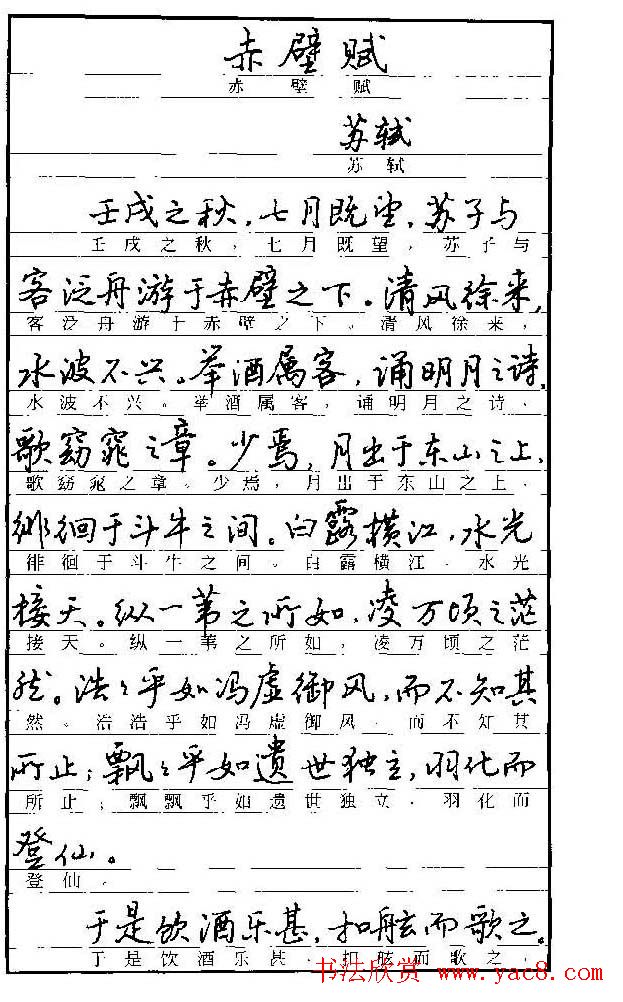 赤壁赋
赤壁赋
苏轼
苏轼
壬戌之秋，七月既望，苏子与
壬戌之秋，七月既望，苏子与
客泛舟游于赤壁之下。清风徐来，
客泛舟游于赤壁之下。清风徐来，
水波不兴。举酒属客，诵明月之诗，
水波不兴。举酒属客，诵明月之诗，
歌窈窕之章。少焉，月出于东山之上，
歌窈窕之章。少焉，月出于东山之上，
徘徊于斗牛之间。白露横江，水光
徘徊于斗牛之间。白露横江，水光
接天。纵一苇之所如，凌万顷之茫
接天。纵一苇之所如，凌万顷之茫
然。浩々乎如冯虚御风，而不知其
然。浩浩乎如冯虚御风，而不知其
所止；飘々乎如遗世独立，羽化而
所止；飘飘乎如遗世独立，羽化而
登仙。
登仙。
于是饮酒乐甚，扣舷而歌之。
于是饮酒乐甚，扣舷而歌之。
书法欣赏 www.yac8.com